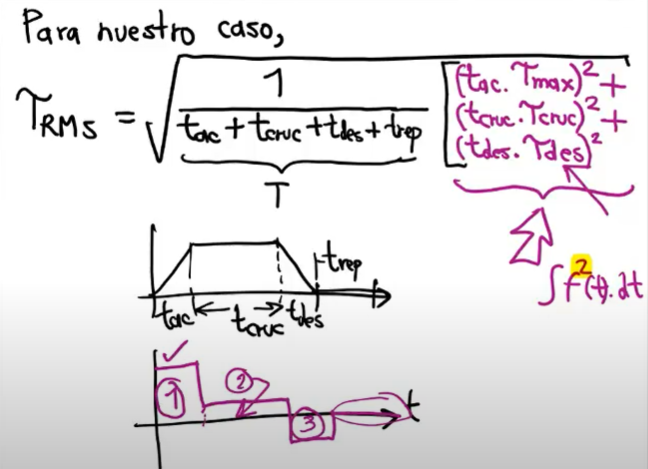 Para nuestro caso,
τRMS = √ 1 / (tac + tcruc + tdes + trep) [(tac. τmax)² +
(tcruc. τcruc)² +
(tdes. τdes)²
T
∫ f²(t). dt
trep
tac tcruc tdes
1 2 3 t